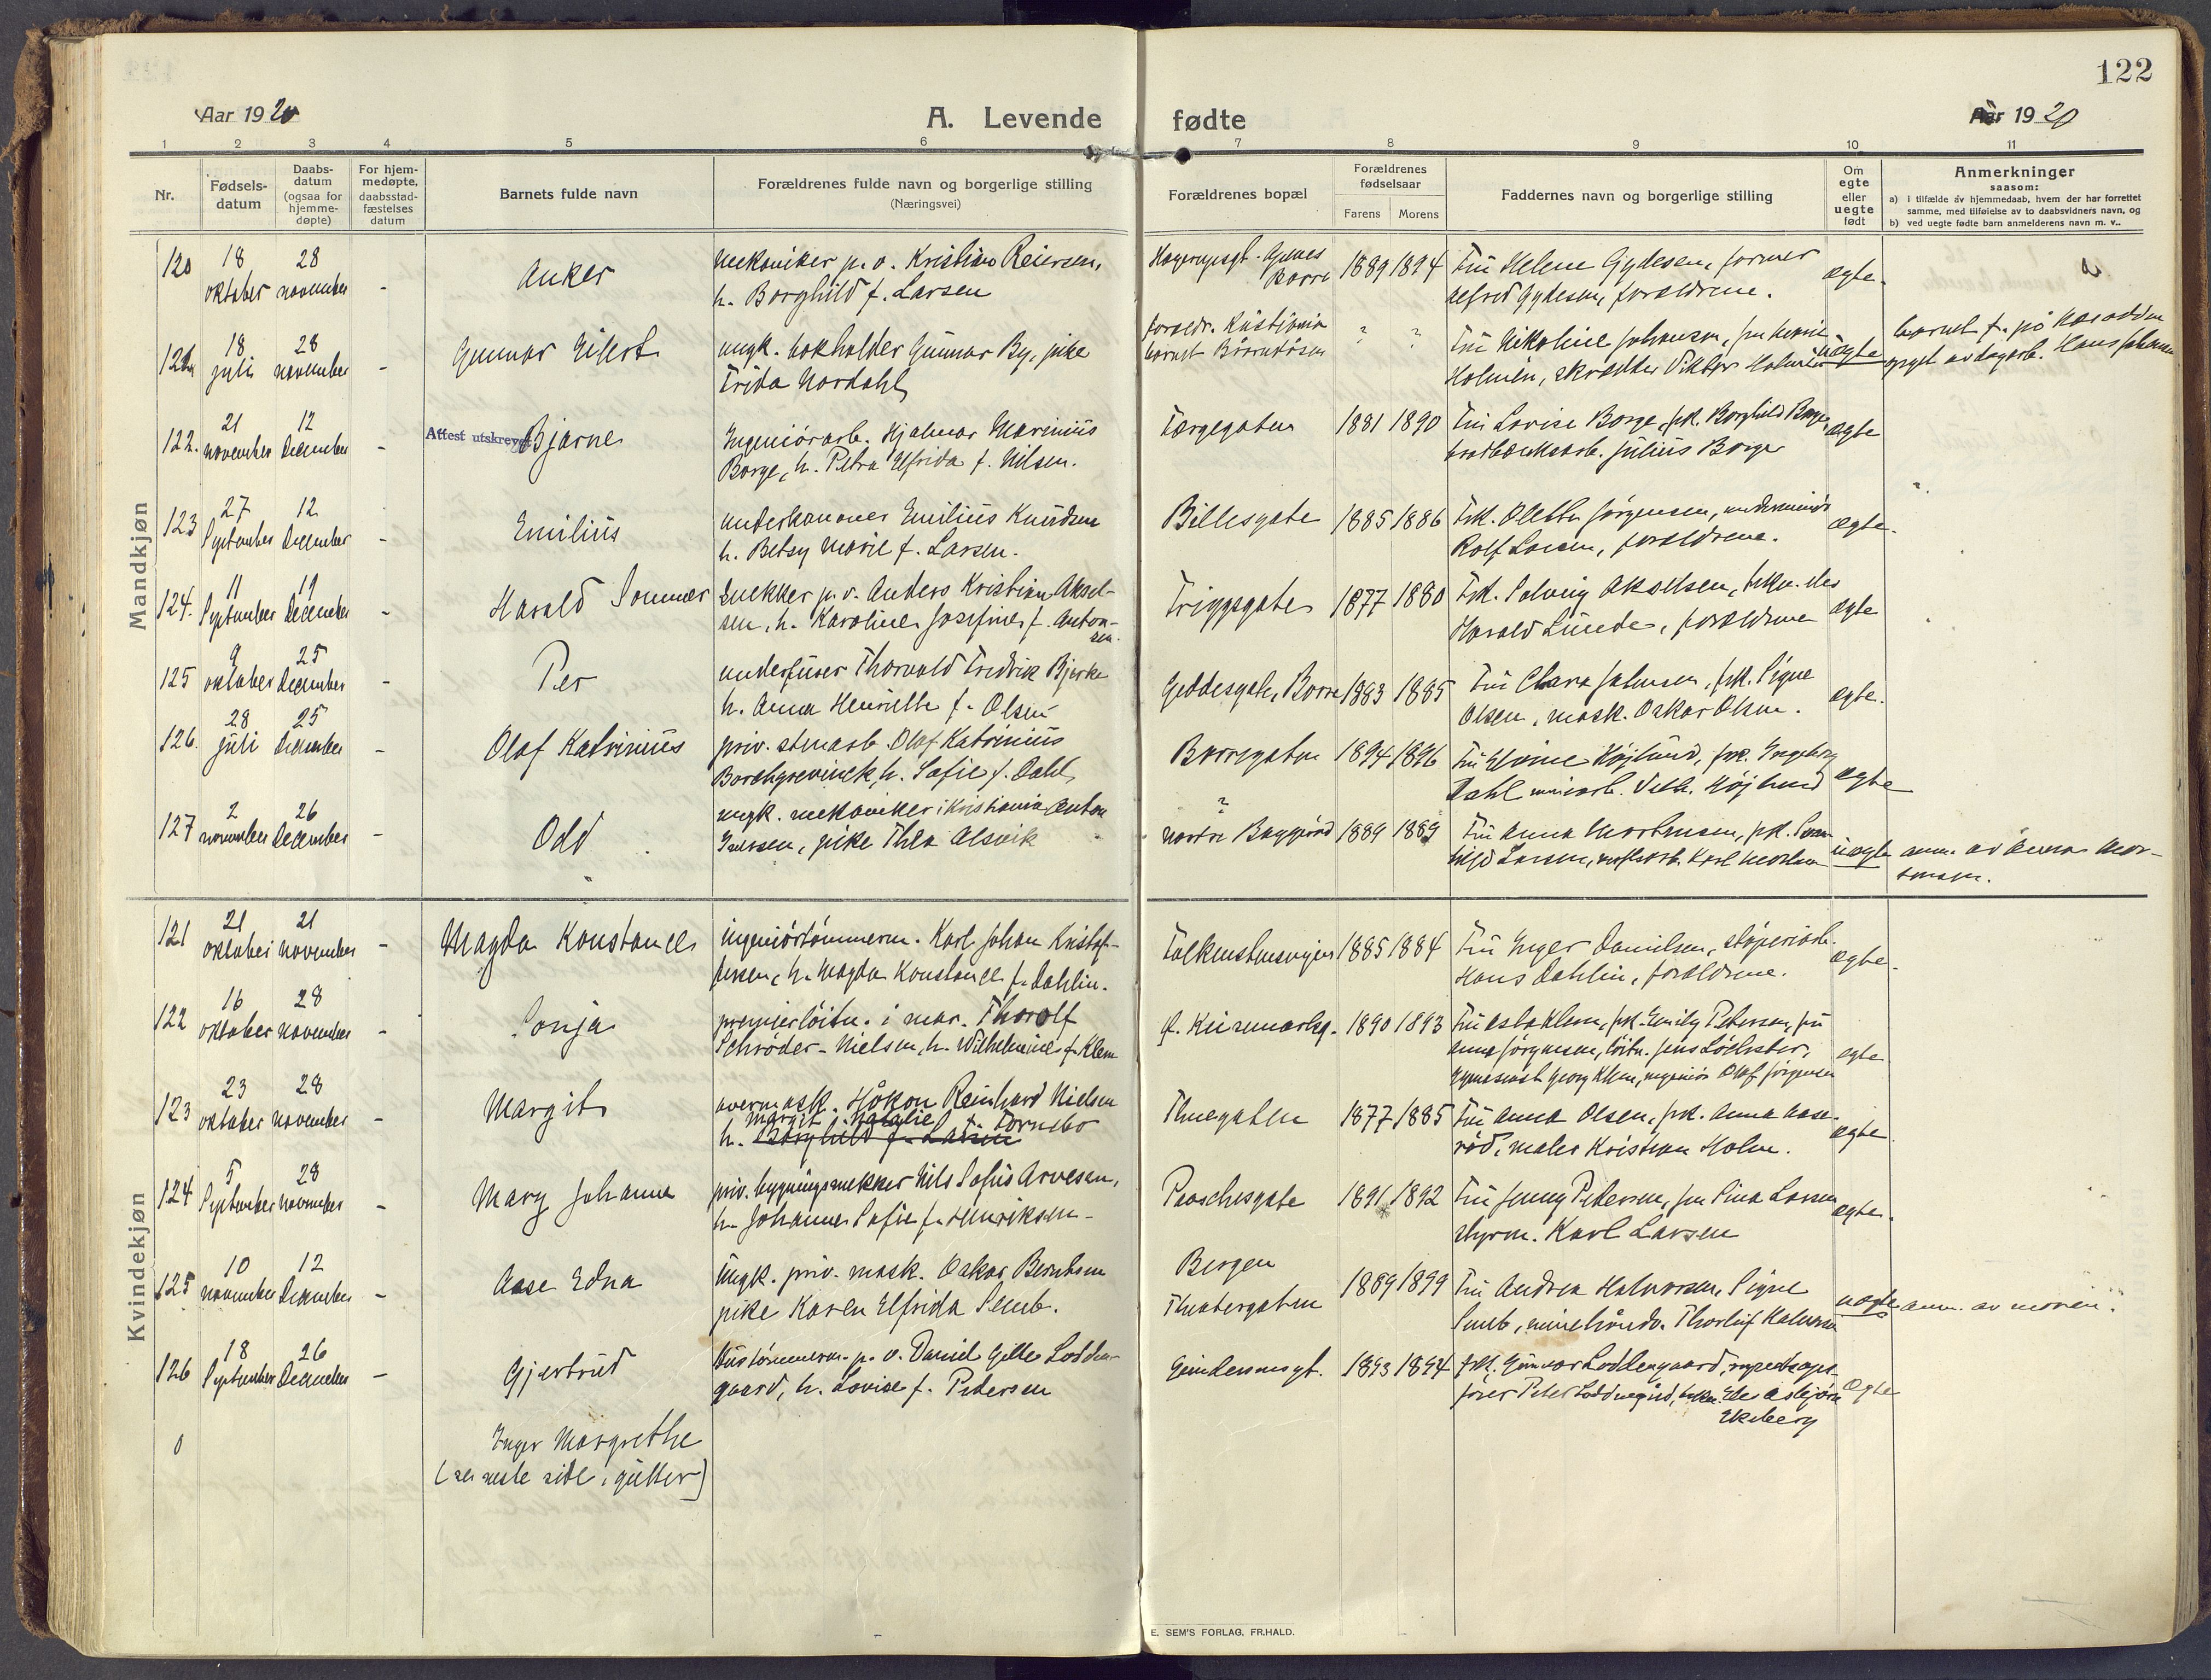 122
Aar 1920
A. Levende fødte
Aar 1920
1 2 3 4 5 6 7 8 9 10 11
Nr.
Fødsels-
datum
Daabs-
datum
(ogsaa for
hjemme-
døpte)
For hjem-
medøpte,
daabsstad-
fæstelses
datum
Barnets fulde navn
Forældrenes fulde navn og borgerlige stilling
(Næringsvei)
Forældrenes bopæl
Forældrenes
fødselsaar
Farens
Morens
Faddernes navn og borgerlige stilling
Om
egte
eller
uegte
født
Anmerkninger
saasom:
a) i tilfælde av hjemmedaab, hvem der har forrettet
samme, med tilføielse av to daabsvidners navn, og
b) ved uegte fødte barn anmelderens navn m. v..
Mandkjøn
120 18 oktober 28 november -
Anker
mekaniker p. v. Kristian Reiersen,
h. Borghild f. Larsen
Borre
1889 1894
Fru Helene Gydesen, former
Alfred Gydesen, forældrene.
egte.
121 18 juli 28 november -
Gunnar Eilert
ungk. bokholder Gunnar By, pike
Frida Nordahl
forældr. Kristiania
barnet
? ?
Fru Nikoline Johansen, fru
Holmén, skrædder Viktor Holmén
uegte
opgit av dagarb. Hans Johansen
122. 21 november 12 December -
Attest utskrevet
Bjarne
Ingeniörarb. Hjalmar Marinius
Borge, h. Petra Elfrida f. Nilsen.
Torgegaten
1881 1890
Fru Lovise Borge, frk. Borghild Borge,
Julius Borge
egte
123 27 September 12 December -
Emilius
underkanoner Emilius Knudsen
h. Betsy Marie f. Larsen.
Billesgate
1885 1886
Frk. Olette Jörgensen, underminör
Rolf Larsen, forældrene.
egte.
124. 11 September 19 December -
Harald Sommer
Snekker p. v. Anders Kristian Aksel-
sen, h. Karoline Josefine f. Anton-
sen.
Triggsgate
1877 1880
Frk. Solveig Akselsen,
Harald Lunde, forældrene
egte
125 9 oktober 25 December -
Per
underfurer Thorvald Fredrik Bjerke
h. Anna Henriette f. Olsen
Geddesgate, Borre
1883 1885
Fru Clara Johnsen, frk. Signe
Olsen, mask. Oskar Olsen.
egte.
126. 28 juli 25 December -
Olaf Katrinius
priv. stenarb. Olaf Katrinius
Borchgrevinck, h. Sofie f. Dahl
Borregaten
1894 1896
Fru Höjlund, frk. Ingeborg
Dahl minearb. Vilh. Höjlund
egte
127 2 november 26 December -
Odd
ungk. mekaniker i Kristiania Anton
Iversen, pike Thea Alsvik
?
nordre Baggeröd
1889 1889
Fru Anna Mortensen, frk.
Larsen, verftsarb. Karl Mortensen
uegte
anm. av Anna Mor-
tensen.
Kvindekjøn
121 21 oktober 21 november -
Magda Konstance
ingeniörtömmerm. Karl Johan Kristof-
fersen, h. Magda Konstance f. Dahlin.
Falkenstensveien
1885 1884
Fru Inger Danielsen, stöperiarb.
Hans Dahlin, forældrene.
egte.
122 16 oktober 28 november -
Sonja
premierlöitn. i mar. Thorolf
Schröder-Nielsen, h. Wilhelmine f. Klem
1890 1893
Fru Asta Klem, frk. Emily Petersen, fru
Anna Jörgensen, löitn. Jens Löchster,
Georg Klem, ingeniör Olaf Jörgensen
egte
123 23 oktober 28 november -
Margit
overmask. Håkon Reinhard Nielsen
Margit Natalie Fornebo
h. Borghild f. Larsen
Thuegaten
1877 1885
Fru Anna Olsen, frk. Anna Aase-
röd, maler Kristian Holm.
egte
124 5 September 28 november -
Mary Johanne
priv. bygningssnekker Nils Sofus Arvesen,
h. Johanne Sofie f. Henriksen.
Paaschesgate
1891 1892
Fru Jenny Petersen, fru Sina Larsen
styrm. Karl Larsen
egte.
125 10 november 12 December -
Aase Edna
Ungk. priv. mask. Oskar Berntsen
pike Karen Elfrida Semb.
Bergen
Theatergaten
1889 1899
Fru Andrea Halvorsen, Signe
Semb, minehåndv. Thorleif Halvorsen
uegte
anm. av moren.
126 18 September 26 December -
Gjertrud
Hustömmerm. p. v. Daniel Gelle Lodden-
gaard, h. Lovise f. Pedersen
Gundersensgt.
1893 1894
frk. Gunvor Loddengaard,
Peter Loddengård, Asbjörn
Ekeberg
egte
0
Inger Margrethe
(se neste side, gutter)
E. SEM'S FORLAG, FR.HALD.